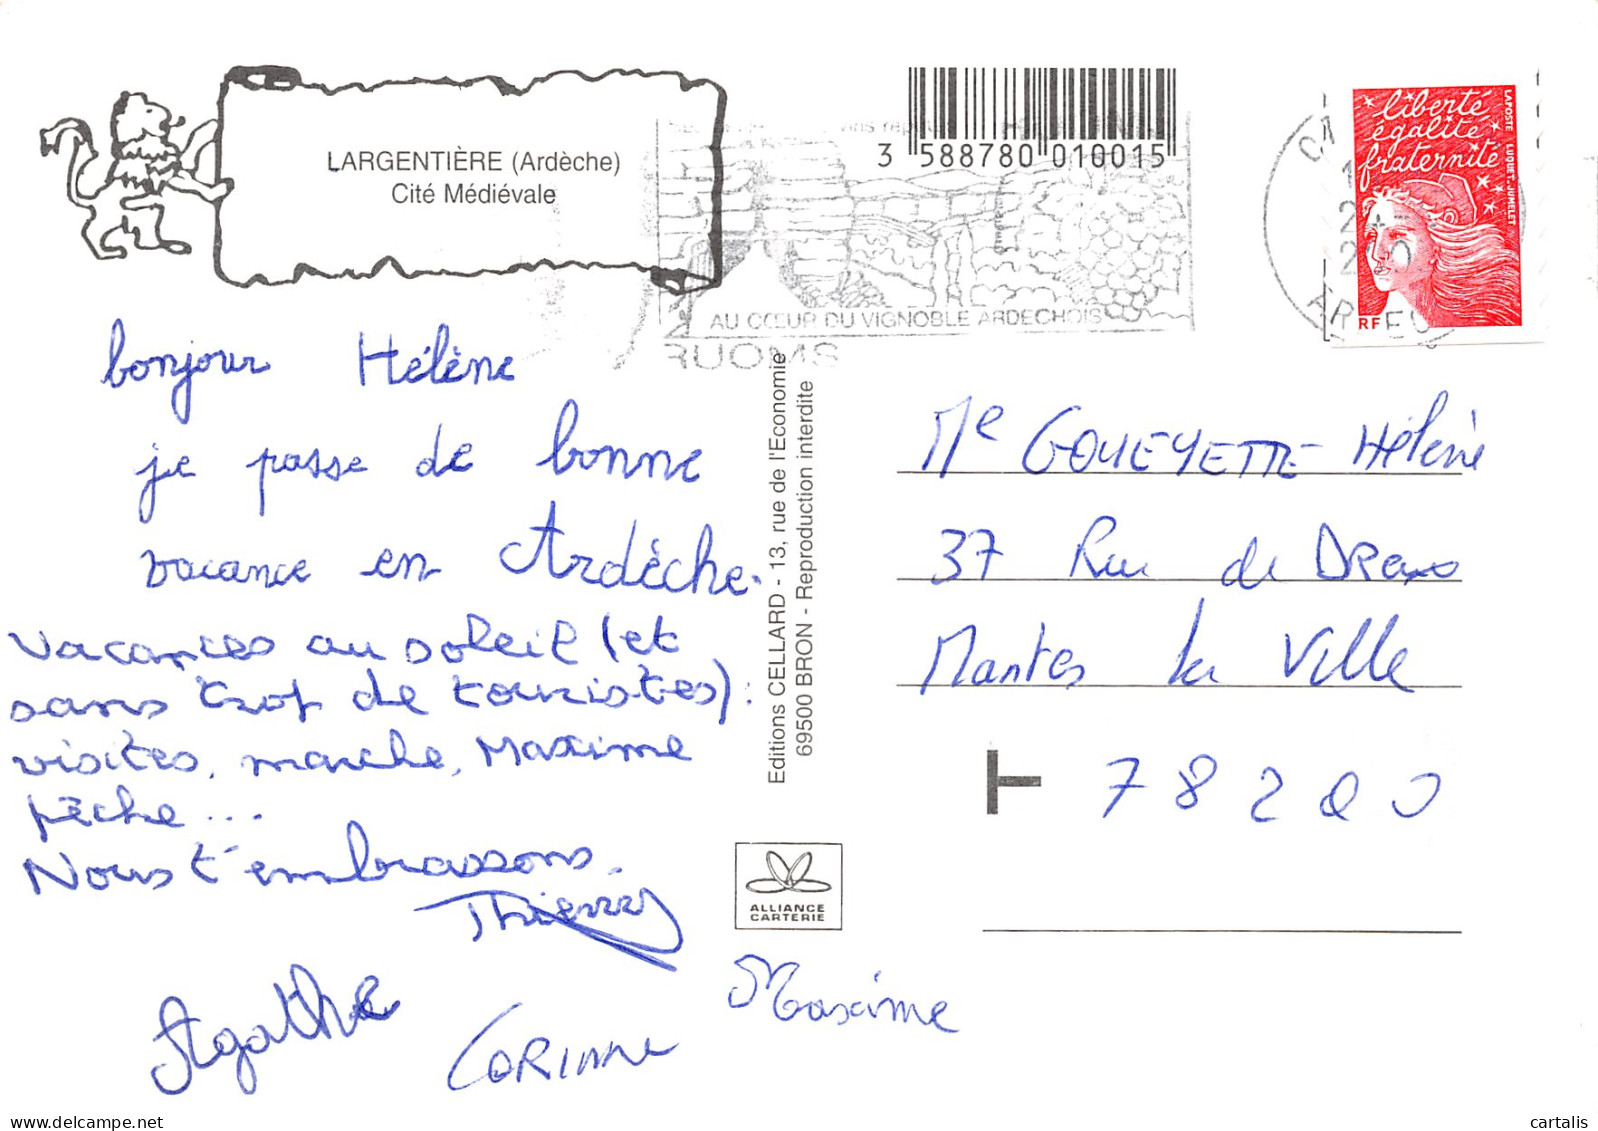 LARGENTIÈRE (Ardèche)
Cité Médiévale
3 588780 010015
AU CŒUR DU VIGNOBLE ARDECHOIS
RUOMS
liberté
égalité
fraternité
LAPOSTE LUQUET-JUMELET
RF
bonjour Hélène
je passe de bonne
vacance en Ardèche.
Vacances au soleil (et
sans trop de touristes):
visites, marche, Maxime
pêche...
Nous t'embrassons.
Thierry
Agathe
CORINNE
Maxime
Editions CELLARD - 13, rue de l'Economie
69500 BRON - Reproduction interdite
ALLIANCE
CARTERIE
Me GOUEYETTE Hélène
37 Rue de Dreux
Mantes la Ville
T 78200
cartalis